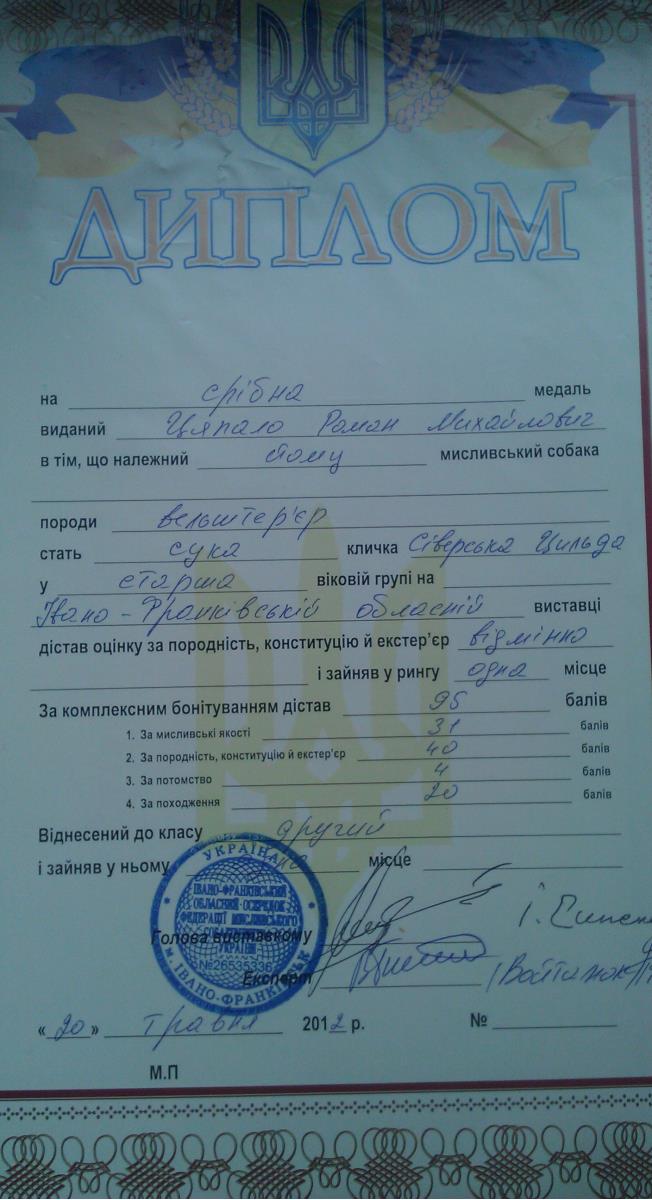 ДИПЛОМ
на срібна медаль
виданий Цяпало Роман Михайлович
в тім, що належний йому мисливський собака
породи вельштер'єр
стать сука кличка Сіверська Цильда
у старша віковій групі на
Івано-Франківській обласній виставці
дістав оцінку за породність, конституцію й екстер'єр відмінно
і зайняв у рингу одна місце
За комплексним бонітуванням дістав 95 балів
1. За мисливські якості 31 балів
2. За породність, конституцію й екстер'єр 40 балів
3. За потомство 4 балів
4. За походження 20 балів
Віднесений до класу другий
і зайняв у ньому місце
УКРАЇНА
ІВАНО-ФРАНКІВСЬКИЙ
ОБЛАСНИЙ ОСЕРЕДОК
ФЕДЕРАЦІЇ МИСЛИВСЬКОГО
СОБАКІВНИЦТВА
УКРАЇНИ
№26535336
м. ІВАНО-ФРАНКІВСЬК
Голова виставкому
Експерт
«20» травня 2012 р. №
М.П